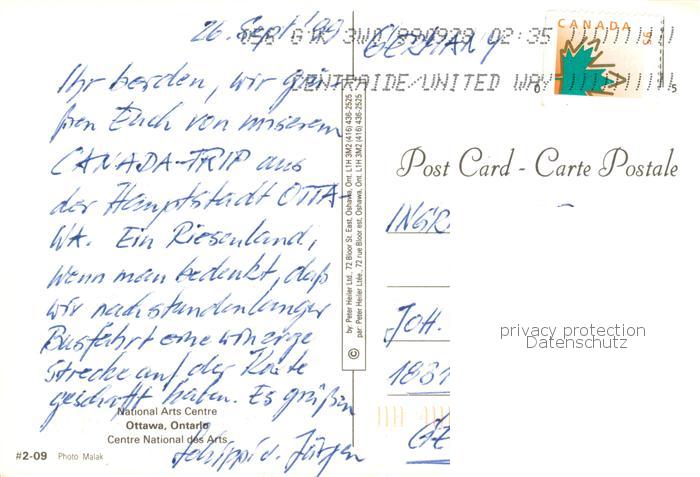 26. Sept '99
Ihr beiden, wir grü-
ßen Euch von unserem
CANADA-TRIP aus
der Hauptstadt OTTA-
WA. Ein Riesenland,
wenn man bedenkt, daß
wir nach stundenlanger
Busfahrt eine winzige
Strecke auf der Karte
geschafft haben. Es grüßen
Jürgen
National Arts Centre
Ottawa, Ontario
Centre National des Arts
#2-09 Photo Malak
© by: Peter Heiler Ltd., 72 Bloor St. East, Oshawa, Ont. L1H 3M2 (416) 436-2525
par: Peter Heiler Ltée., 72 rue Bloor est, Oshawa, Ont. L1H 3M2 (416) 436-2525
GERMANY
02:35
CENTRAIDE/UNITED WAY
CANADA
Post Card - Carte Postale
INGR
JOH.
1831
GE
privacy protection
Datenschutz